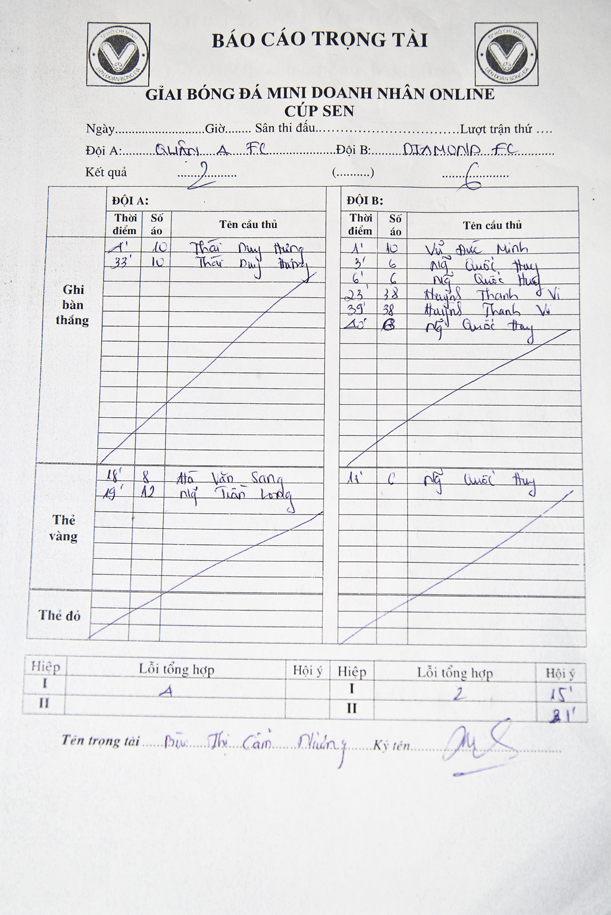 BÁO CÁO TRỌNG TÀI
GIẢI BÓNG ĐÁ MINI DOANH NHÂN ONLINE
CÚP SEN
Ngày.............................Giờ........ Sân thi đấu.............................................Lượt trận thứ ....
Đội A: QUẬN FC Đội B: DIAMOND FC
Kết quả 2 (..........) 6
ĐỘI A: ĐỘI B:
Thời điểm Số áo Tên cầu thủ Thời điểm Số áo Tên cầu thủ
Ghi bàn thắng
10 Thái Duy Hưng 1' 10 Vũ Đức Minh
33' 10 Thái Duy Hưng 3' 6 Ng Quốc Huy
6' 6 Ng Quốc Huy
23' 38 Huỳnh Thanh Vi
39' 38 Huỳnh Thanh Vi
Ng Quốc Huy
Thẻ vàng
18' 8 Hà Văn Sang Ng Quốc Huy
19' 12 Ng Tiến Long
Thẻ đỏ
Hiệp Lỗi tổng hợp Hội ý Hiệp Lỗi tổng hợp Hội ý
I I 2 15'
II II
Tên trọng tài Thị Cẩm Nhung Ký tên